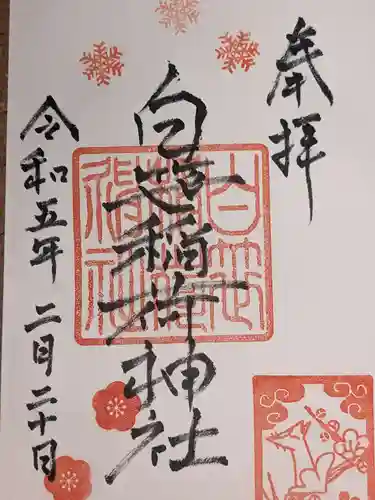 奉拝
白笹稲荷神社
令和五年 二月二十日